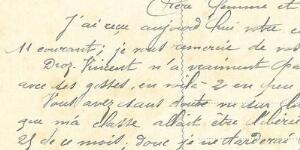 Chère femme et
J'ai reçu aujourd'hui votre c
11 courant; je vous remercie de vos
Drog. Vincent n'a vraiment pas
avec ses gosses, en voilà 2 en peu
Vous avez sans doute vu sur
que ma classe allait être libérée
25 de ce mois, donc je ne tarderai